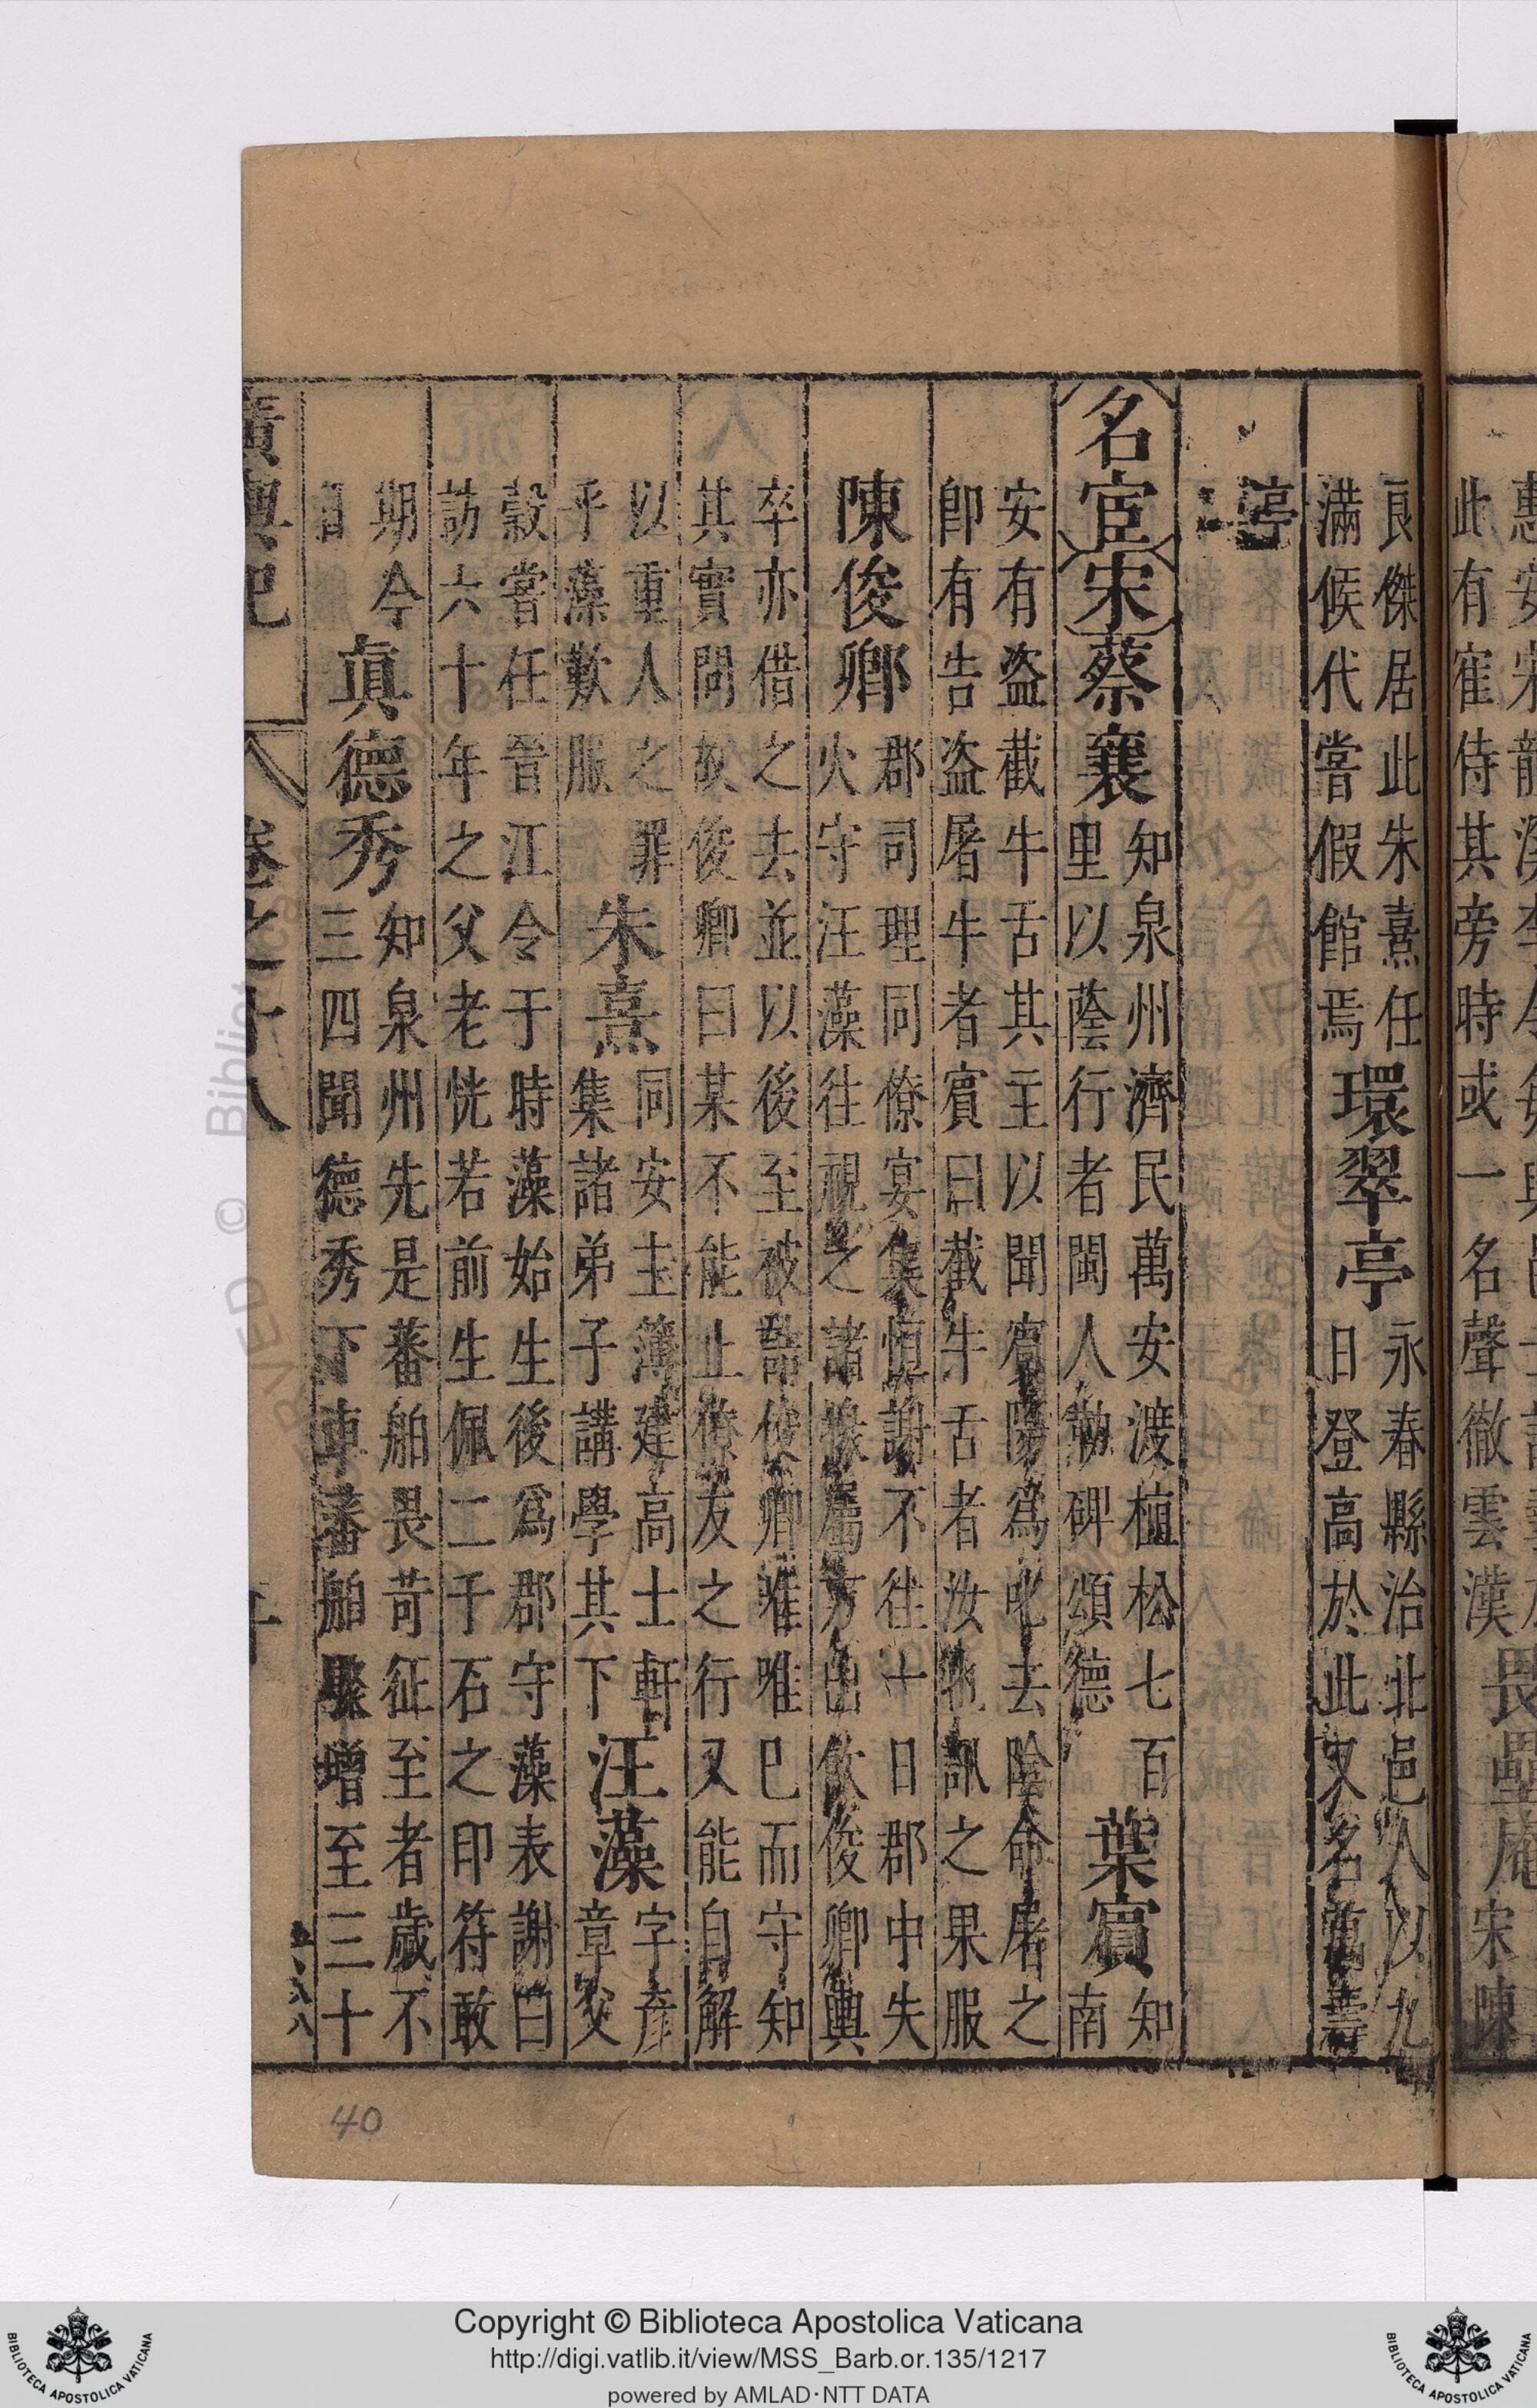 良傑居此朱熹任
滿候代嘗假館焉
環翠亭
永春縣治北邑人以九
日登高於此又名萬壽
亭
名宦
宋
蔡襄
知泉州濟民萬安渡植松七百
里以蔭行者閩人勒碑頌德
葉賓
知
南
安有盜截牛舌其主以聞賓陽為叱去陰命屠之
卽有告盜屠牛者賓曰截牛舌者汝也訊之果服
陳俊卿
郡司理同僚宴集恒謝不往一日郡中失
火守汪藻往視之諸掾屬方出飲俊卿輿
卒亦借之去並以後至被詰俊卿唯唯巳而守知
其實問故俊卿曰某不能止僚友之行又能自解
以重人之罪
乎藻歎服
朱熹
同安主簿建高士軒
集諸弟子講學其下
汪藻
字彥
章父
穀嘗任晉江令于時藻始生後爲郡守藻表謝曰
訪六十年之父老恍若前生佩二千石之印符敢
期今
日
眞德秀
知泉州先是蕃舶畏苛征至者歲不
三四聞德秀下車蕃舶驟增至三十
廣輿記
卷之十八
惠安宋
此有寉侍其旁時或一名聲徹雲漢
畏壘庵
宋陳
40
Copyright © Biblioteca Apostolica Vaticana
http://digi.vatlib.it/view/MSS_Barb.or.135/1217
powered by AMLAD·NTT DATA
BIBLIOTECA APOSTOLICA VATICANA
BIBLIOTECA APOSTOLICA VATICANA